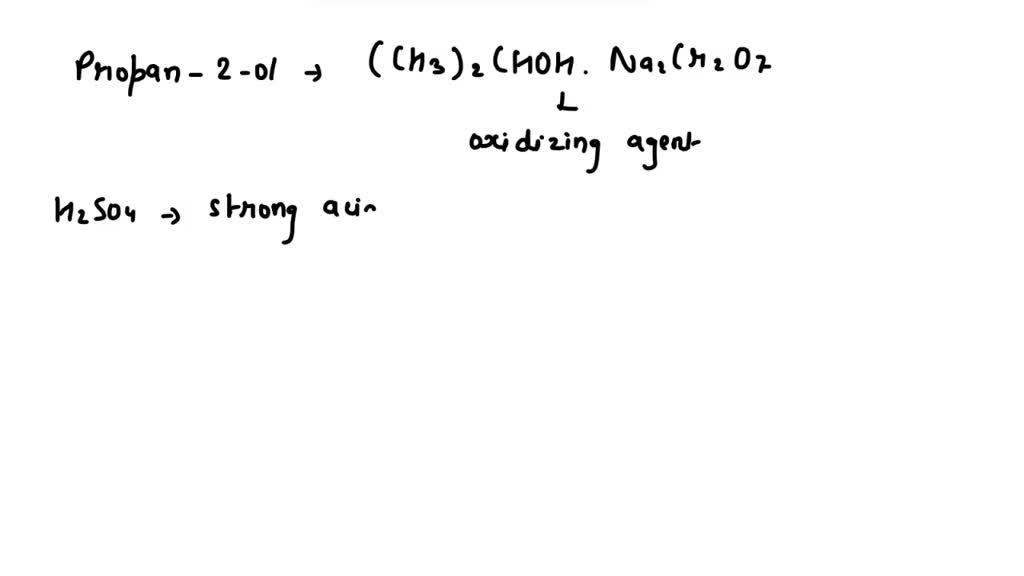 Propan - 2 - ol → (CH3)2CHOH. Na2Cr2O7
oxidizing agent
H2SO4 → strong aci